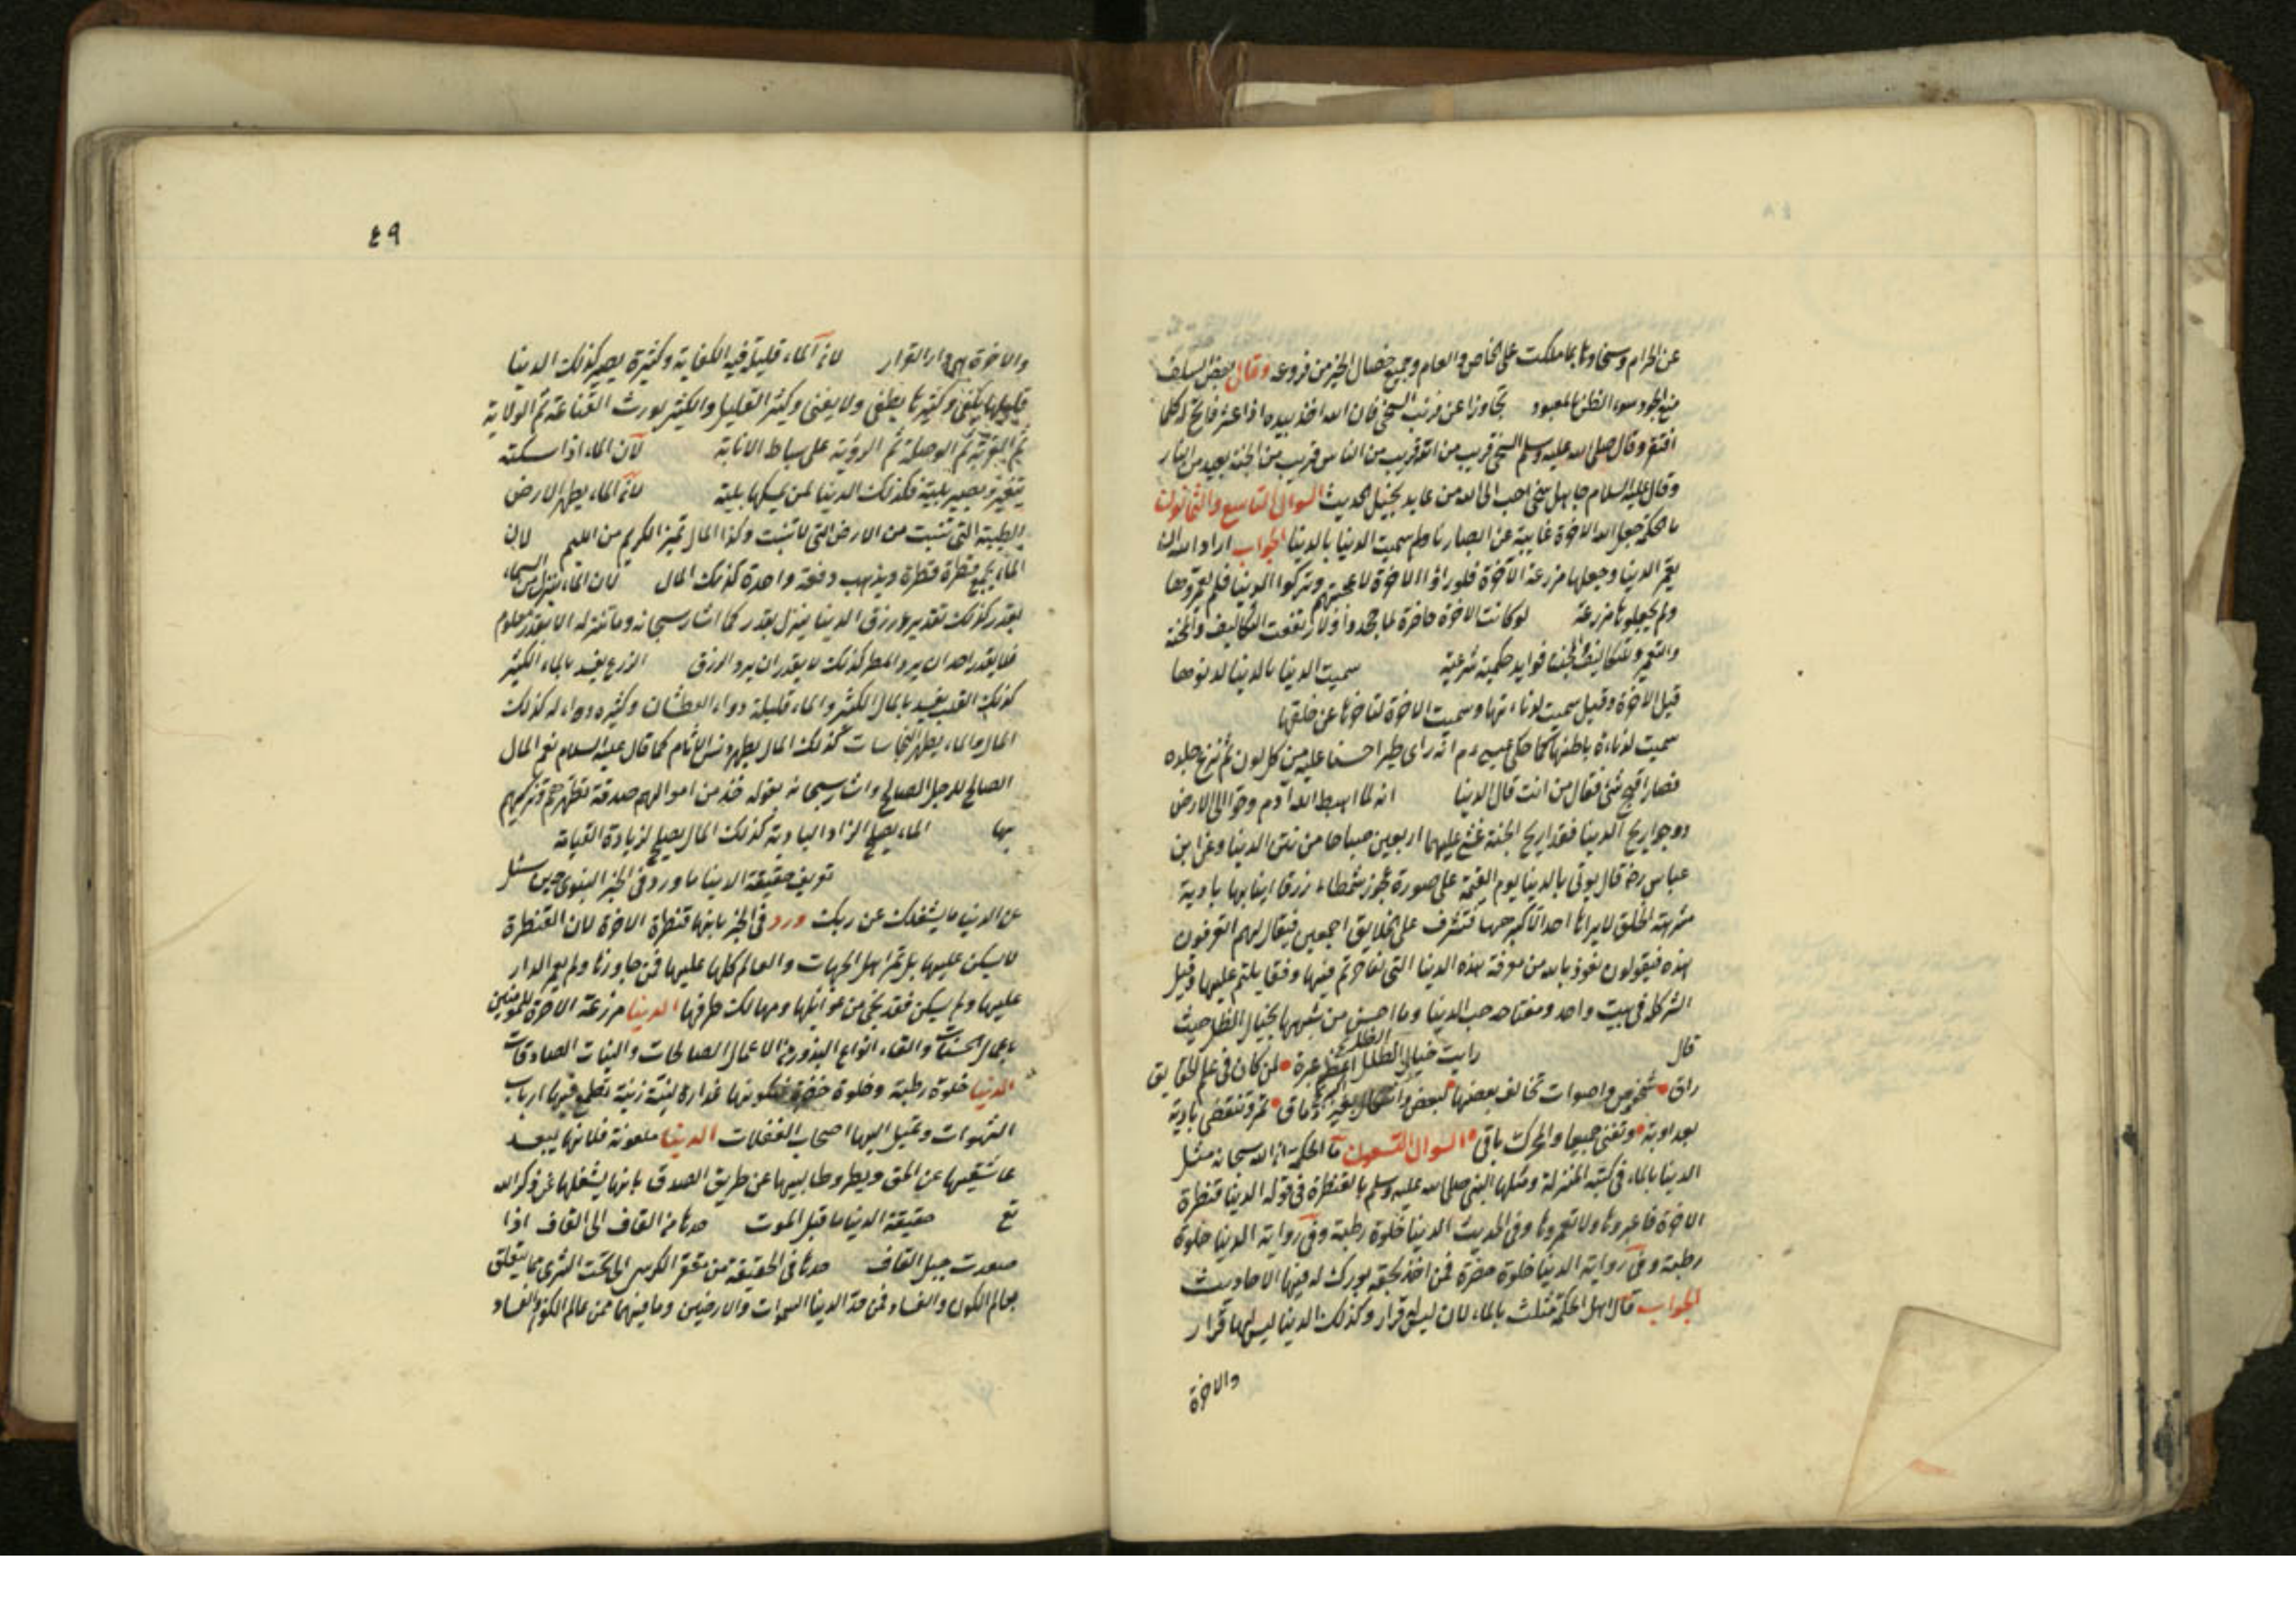 عن الحرام وسخاوتها بما ملكت على الخاص والعام وجميع خصال الخير من فروعه وقال بعض السلف
منع الجود سوء الظن بالمعبود تجاوزوا عن ذنب السخي فان الله اخذ بيده اذا عثر فاتح له كلما
افتقر وقال صلى الله عليه وسلم السخي قريب من الله قريب من الناس قريب من الجنة بعيد من النار
وقال عليه السلام جاهل سخي احب الى الله من عابد بخيل الحديث السوال التاسع والثمانون
ما الحكمة جعل الله الاخرة غايبة عن الابصار ولم سميت الدنيا بالدنيا الجواب اراد الله ان
يعمر الدنيا وجعلها مزرعة الآخرة فلو راوا الاخرة لاعجبتهم وتركوا الدنيا فلم يعمروها
ولم يجعلوها مزرعة لو كانت الاخرة حاضرة لما جحدوا ولارتفعت التكاليف والمحنة
فوايد حكمية شرعية سميت الدنيا بالدنيا لدنوها
قبل الاخرة وقيل سميت لدناءتها وسميت الاخرة لتاخرها عن خلقها
سميت لدناءة باطنها كما حكى عيسى عم انه راى طيرا حسنا عليه من كل لون ثم نزع جلده
فصار اقبح شئ فقال من انت قال الدنيا انه لما اهبط الله آدم وحوا الى الارض
ووجدا ريح الدنيا وفقدا ريح الجنة غشي عليهما اربعين صباحا من نتن الدنيا وعن ابن
عباس رضه قال يوتى بالدنيا يوم القيمة على صورة عجوز شمطاء زرقا انيابها بادية
مشوهة الخلق لا يراها احد الا كرهها فتشرف على الخلايق اجمعين فيقال لهم اتعرفون
هذه فيقولون نعوذ بالله من معرفة هذه الدنيا التي تفاخرتم فيها وقيل
الشر كله في بيت واحد ومفتاحه حب الدنيا وما احسن من شبهها بخيال الظل حيث
قال رايت خيال الظل اعظم عبرة لمن كان في علم الحقايق
راق شخوص واصوات تخالف بعضها لبعض تمر وتنقضي بابة
بعد اوبة وتفنى جميعا والمحرك باقي السوال التسعون ما الحكمة ان الله سبحانه مثل
الدنيا بالماء في كتبه المنزلة ومثلها النبي صلى الله عليه وسلم بالقنطرة في قوله الدنيا قنطرة
الاخرة فاعبروها ولا تعمروها وفي الحديث الدنيا حلوة رطبة وفي رواية الدنيا حلوة
رطبة وفي رواية الدنيا حلوة خضرة فمن اخذ بحقه بورك له فيها الاحاديث
الجواب قال اهل الحكمة مثلت بالماء لان ليس له قرار وكذلك الدنيا ليس لها قرار
والاخرة
٤٩
والاخرة هي دار القرار لان الماء قليله فيه الكفاية وكثيره يضر كذلك الدنيا
قليلها يكفي وكثيرها يطغى ولا يغني
ثم الوصلة ثم الرؤية على بساط الانابة لان الماء اذا اسكنته
يتغير ويصير بلية فكذلك الدنيا لمن يمسكها بلية لان الماء يطهر الارض
الطيبة التي تنبت من الارض التي لا تنبت وكذا المال تميز الكريم من اللئيم لان
الماء يجمع قطرة قطرة ويذهب دفعة واحدة كذلك المال لان الماء ينزل من السماء
بقدر كذلك تقدير رزق الدنيا ينزل بقدر كما اشار سبحانه وما ننزله الا بقدر معلوم
فلا يقدر احد ان يرد المطر كذلك لا يقدر ان يرد الرزق الزرع يفسد بالماء الكثير
كذلك القلب يفسد بالمال الكثير والماء قليله دواء العطشان وكثيره داء له كذلك
المال والماء يطهر النجاسات كذلك المال يطهر دنس الاثام كما قال عليه السلام نعم المال
الصالح للرجل الصالح واشار سبحانه بقوله خذ من اموالهم صدقة تطهرهم وتزكيهم
بها الماء يصلح لزاد البادية كذلك المال يصلح لزيادة القيامة
تعريف حقيقة الدنيا ما ورد في الخبر النبوي حين سئل
عن الدنيا ما يشغلك عن ربك ورد في الخبر بانها قنطرة الاخرة لان القنطرة
لا يسكن عليها بل تمر اهل الجهات والعالم كلها عليها فمن جاوزها ولم يعمر الدار
عليها ولم يسكن فقد نجى من غوائلها ومهالك طرفها الدنيا مزرعة الاخرة للمؤمنين
باعمال الحسنات والقاء انواع البذور من الاعمال الصالحات والنيات الصادقات
الدنيا حلوة رطبة وحلوة خضرة غدارة لينة زينة تطمع فيها ارباب
الشهوات وتميل اليها اصحاب الغفلات الدنيا ملعونة فلانها يبعد
عاشقيها عن الحق ويطرد طالبيها عن طريق الصدق بانها يشغلها عن ذكر الله
تع حقيقة الدنيا ما قبل الموت حدها من القاف الى القاف اذا
صعدت جبل القاف حدها في الحقيقة من مقعر الكرسي الى تحت الثرى مما يتعلق
بعالم الكون والفساد فمن حد الدنيا السموات والارضين وما فيهما من عالم الكون والفساد